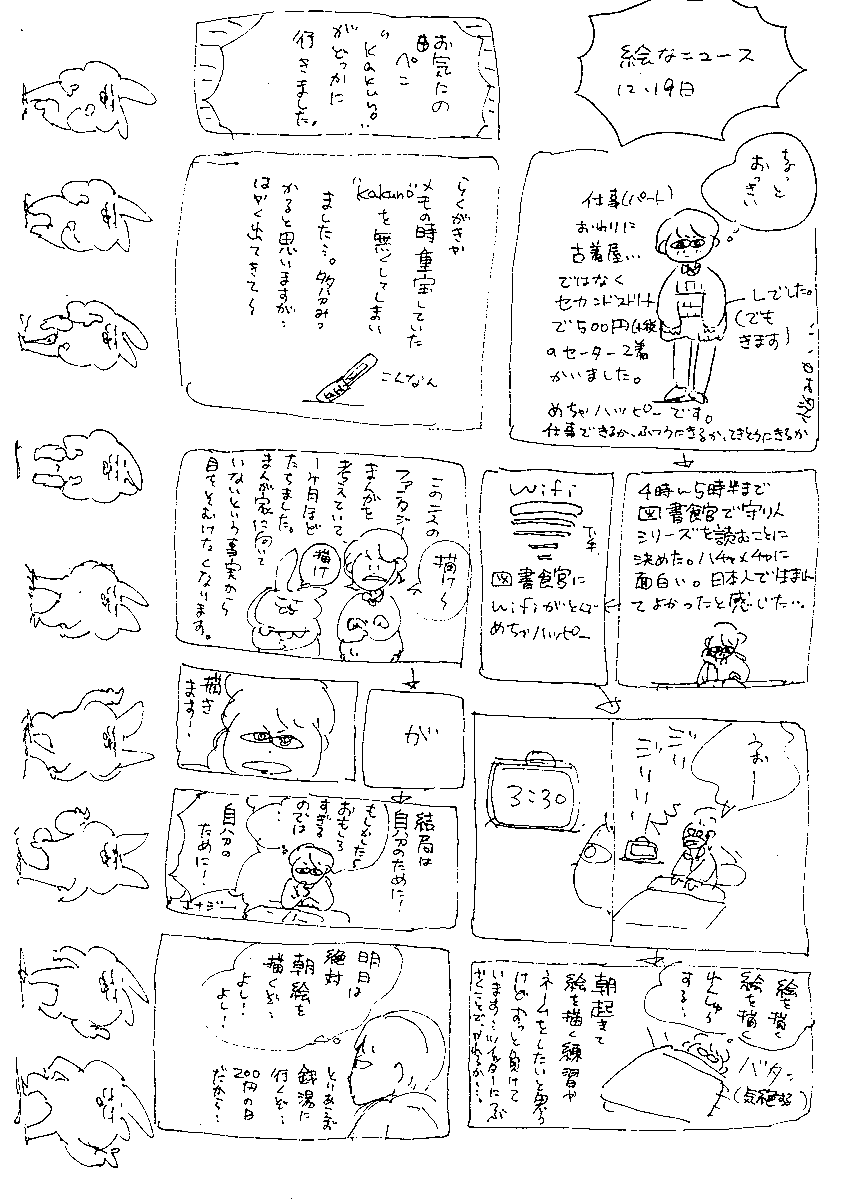 絵なニュース
12.19日
もっと
おっきい
仕事(パート)
おわりに
古着屋...
ではなく
セカンドストリート
で500円(+税)
のセーター2着
かいました。
めちゃハッピーです。
仕事できるか、ふつうにきるか、てきとうにきるか
しでした。
(でも
きます)
4時〜5時半まで
図書館で守り人
シリーズを読むことに
決めた。ハチャメチャに
面白い。日本人でほまんと
てよかったと感じた...
wifi
図書館に
wifiがとんで
めちゃハッピー
うおー
ジリリリー
3:30
絵を描く
絵を描く
れんしゅう
する...
バタン
(気絶する)
朝起きて
絵を描く練習や
ネームをしたいと思う
けどずっと負けて
います...ツイッターにつぶ
やくことで、かわるか...
お気に入りの
ペン
"kakuno"
がどっかに
行きました。
らくがきや
メモの時重宝していた
"kakuno"を無くしてしまい
ました...。多分みつ
かると思いますが...
はやく出てきて〜
こんなん
この二人の
ファンタジー
まんがを
考えていて、
1ヶ月ほど
たちました。
まんが家に向いて
いないという事実から
目をそむけたくなります。
描け〜
描け
が
描き
ます...
結局は
自分のために!
もしかしたら
おもしろ
すぎる
のでは
...
自分の
ために!
明日は
絶対
朝絵を
描くぞ...
よし!
よし!
とりあえず
銭湯に
行くぞ...
200円の日
だから...